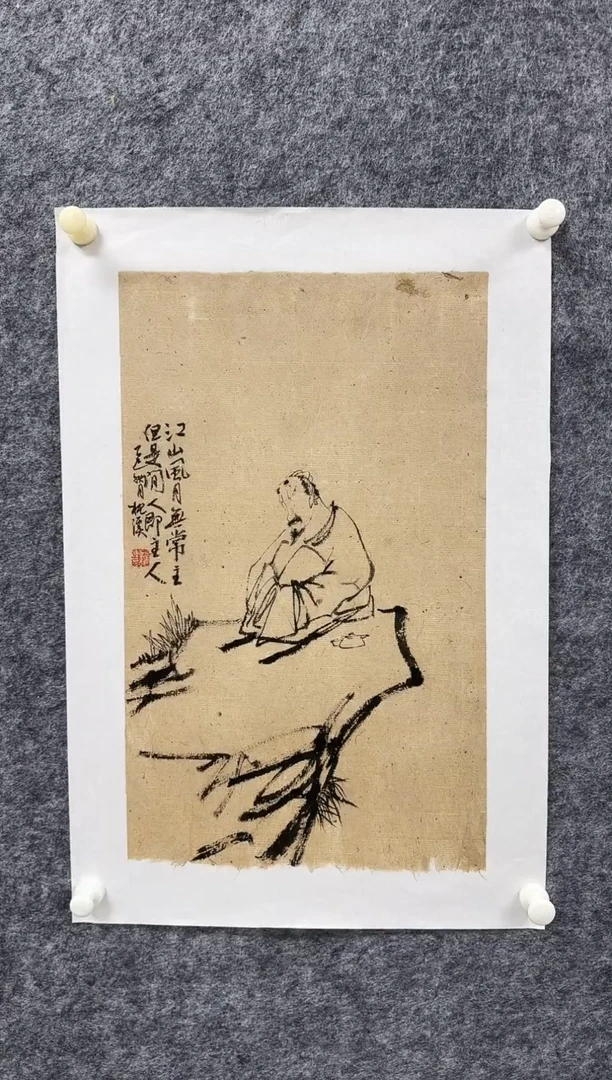 江山風月無常主
但是閒人即主人